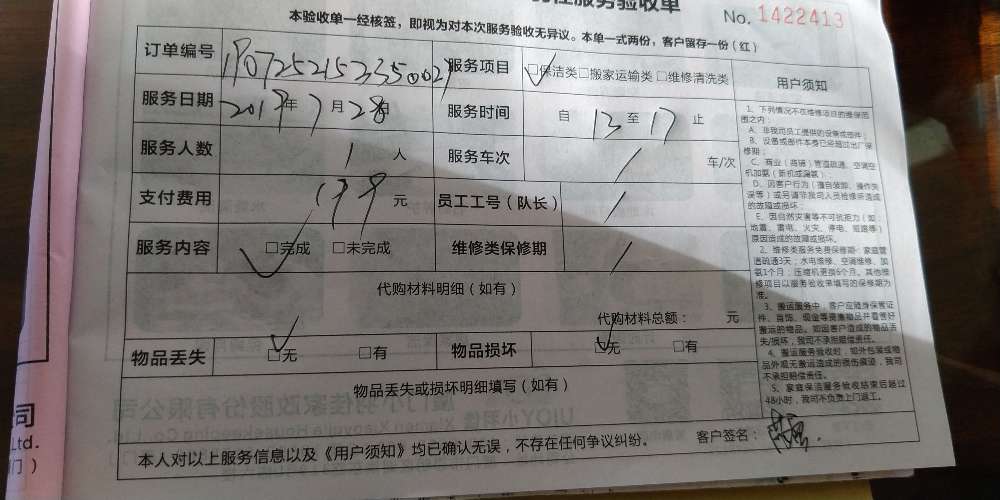 服务验收单
No. 1422413
本验收单一经核签，即视为对本次服务验收无异议。本单一式两份，客户留存一份（红）
订单编号 服务项目 □保洁类□搬家运输类□维修清洗类
服务日期 年7月28 服务时间 自 13 至 17 止
服务人数 1 人 服务车次 / 车/次
支付费用 199 元 员工工号（队长） /
服务内容 □完成 □未完成 维修类保修期 /
代购材料明细（如有）
代购材料总额： 元
物品丢失 □无 □有 物品损坏 □无 □有
物品丢失或损坏明细填写（如有）
本人对以上服务信息以及《用户须知》均已确认无误，不存在任何争议纠纷。 客户签名：
用户须知
1、下列情况不在维修项目的维保范
围之内：
A、非我司员工提供的设备或部件；
B、设备或部件本身已经超过出厂保
修期；
C、商业（商铺）管道疏通、空调空
机加氨（新机或漏氨）；
D、因客户行为（擅自装卸、操作失
误等）或另请非我司人员检修来造成
的故障或损坏；
E、因自然灾害等不可抗拒力（如：
地震、雷电、火灾、停电、短路等）
原因造成的故障或损坏。
2、维修类服务免费保修期：家庭管
道疏通3天；水电维修、空调维修、加
氨1个月；压缩机更换6个月。其他维
修项目以服务验收单填写的保修期为
准。
3、搬运服务中，客户应随身保管证
件、首饰、现金等贵重物品并看管好
搬运的物品。如因客户造成的物品丢
失/损坏，我司不承担赔偿责任。
4、搬运服务验收时，如外包装或物
品外观无搬运造成的损伤痕迹，我司
不承担赔偿责任。
5、家庭保洁服务验收结束后超过
48小时，我司不负责上门返工。
司
Ltd.
门）